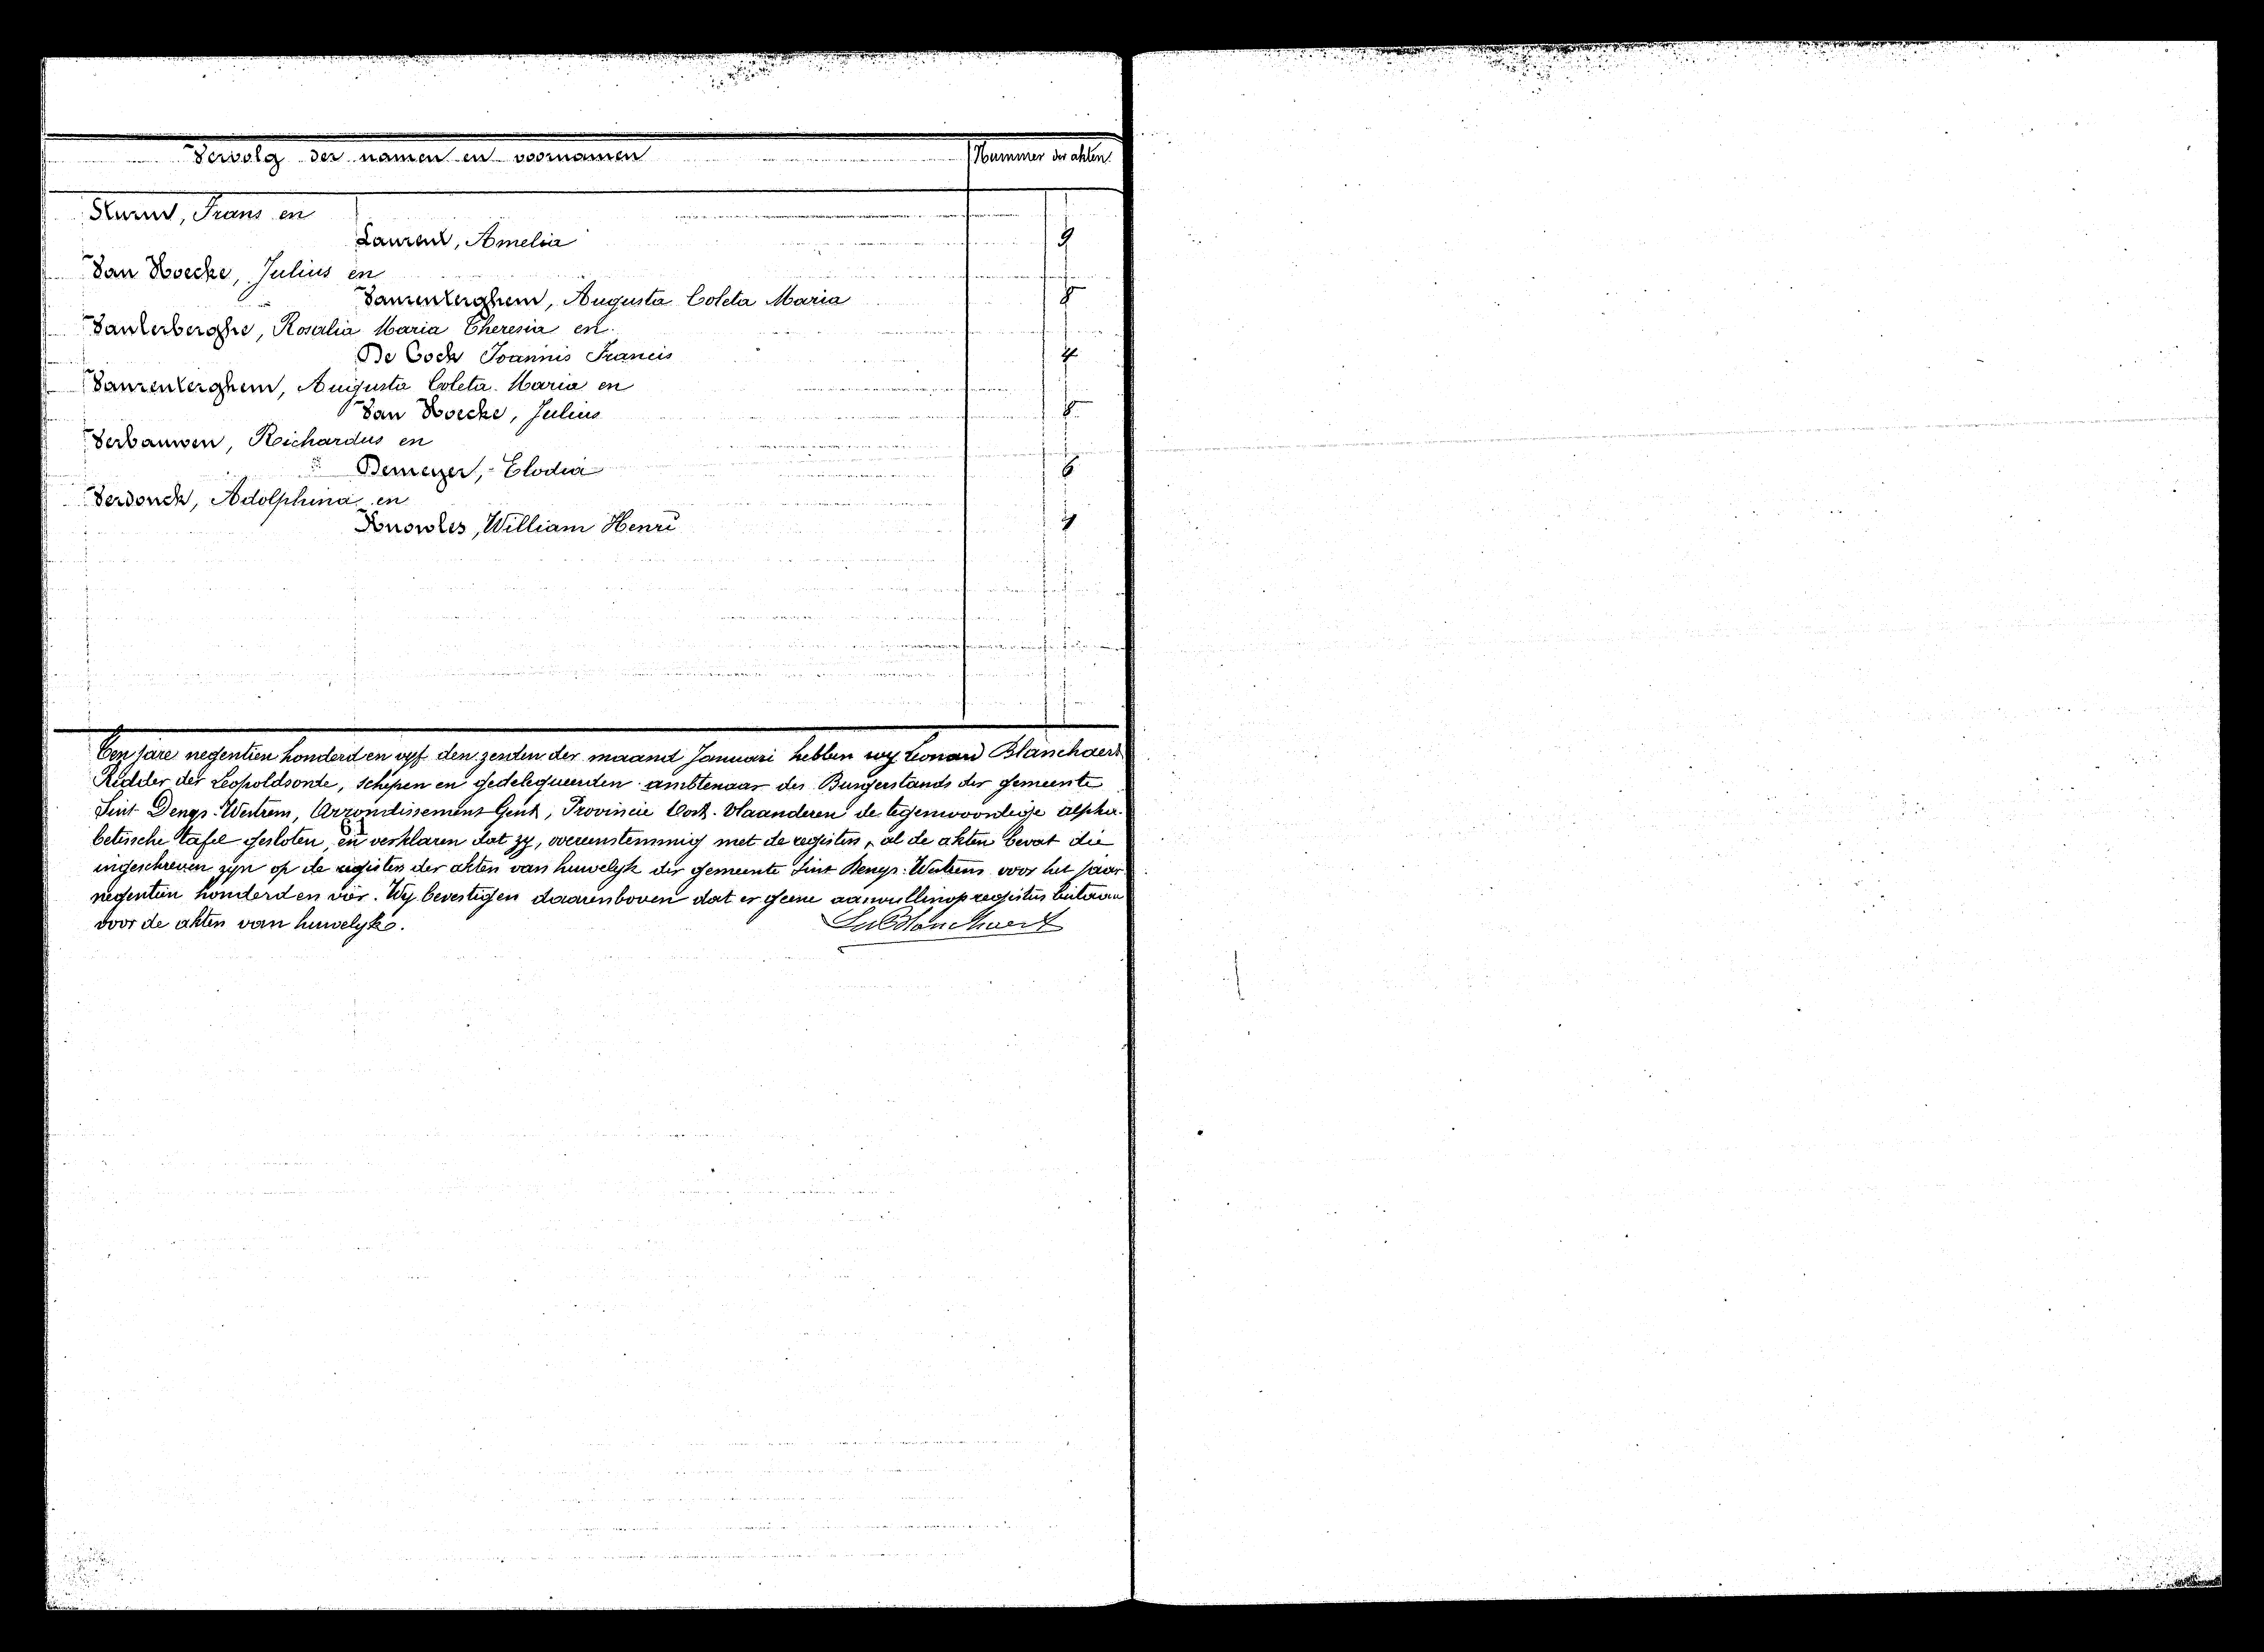 Vervolg der namen en voornamen Nummer der akten
Sturm, Frans en
Laurent, Amelia 9
Van Hoecke, Julius en
Vanrenterghem, Augusta Coleta Maria 8
Vanlerberghe, Rosalia Maria Theresia en
De Cock Joannis Francis 4
Vanrenterghem, Augusta Coleta Maria en
Van Hoecke, Julius 8
Verbauwen, Richardus en
Demeyer, Elodia 6
Verdonck, Adolphina en
Knowles, William Henri
Ten jare negentien honderd en vyf den zesden der maand Januari hebben wy Leonard Blanchaert
Ridder der Leopoldsorde, schepen en gedelegueerden ambtenaar des Burgerstands der gemeente
Sint Denys-Westrem, Arrondissement Gent, Provincie Oost-Vlaanderen de tegenwoordige alpha-
betische tafel gesloten, en verklaren dat zy, overeenstemmig met de registers, al de akten bevat die
61
ingeschreven zyn op de registers der akten van huwelyk der gemeente Sint Denys-Westrem voor het jaar
negentien honderd en vier. Wy bevestigen daarenboven dat er geene aanvullingsregisters bestaan
voor de akten van huwelyk.
Blanchaert